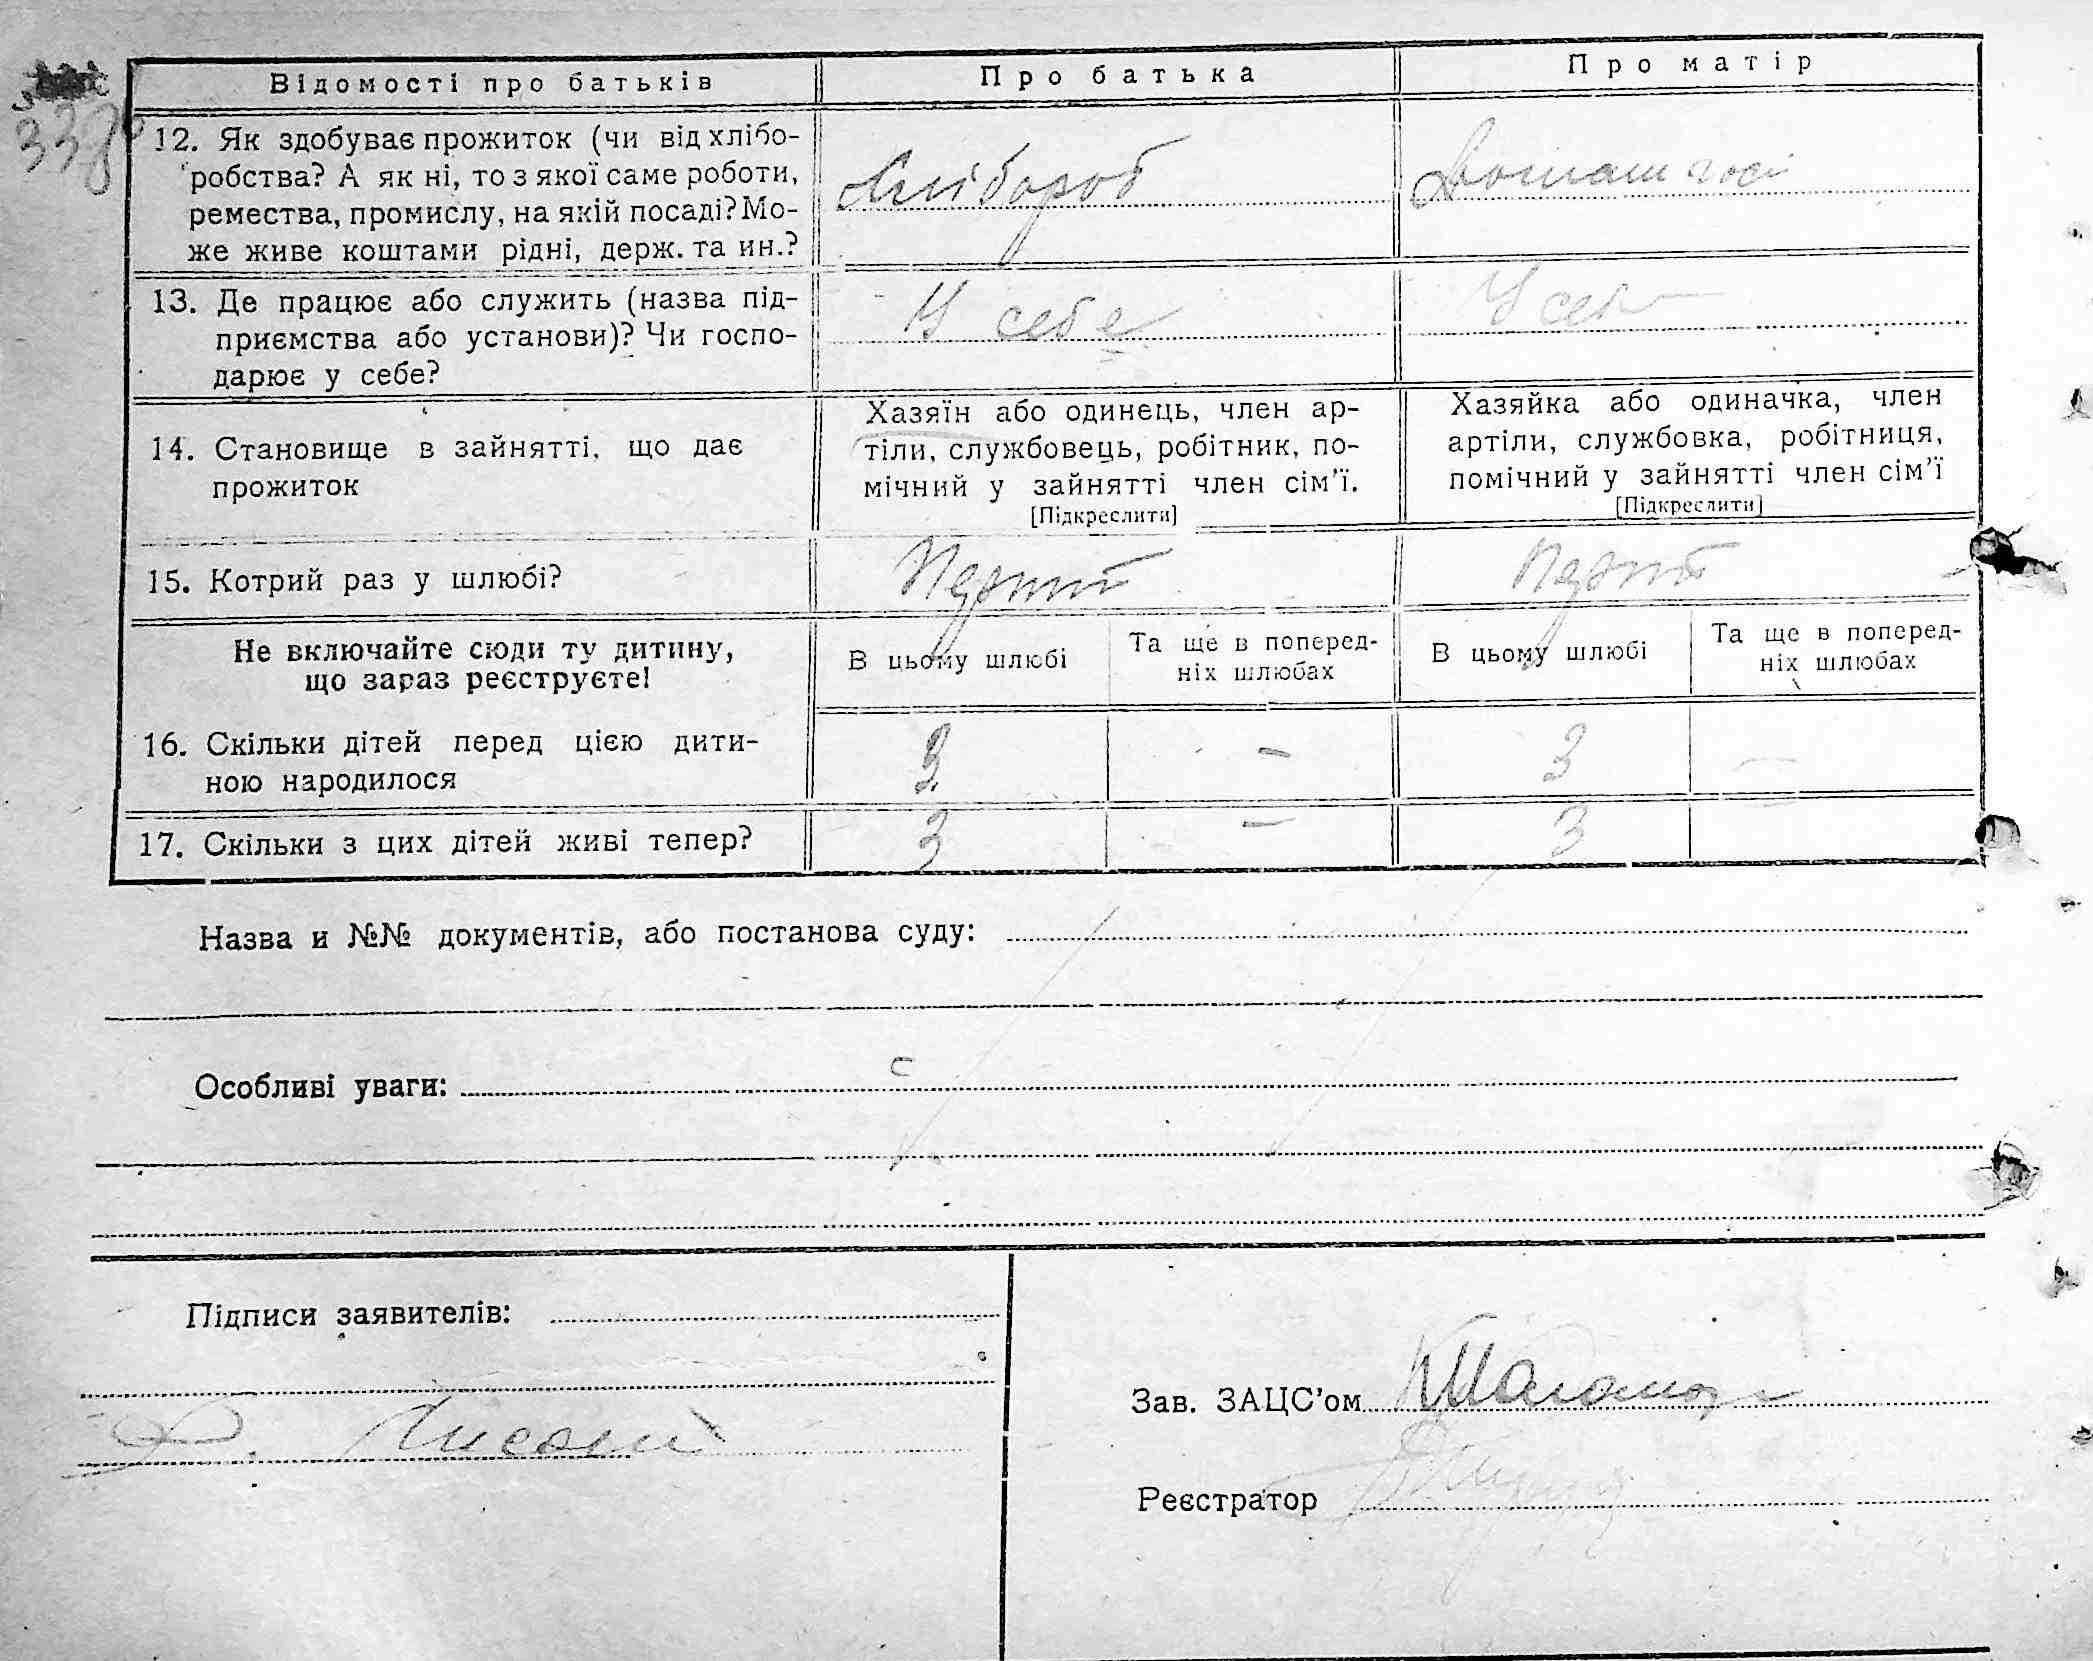 338
Відомості про батьків
Про батька
Про матір
12. Як здобуває прожиток (чи від хлібо-
робства? А як ні, то з якої саме роботи,
ремества, промислу, на якій посаді? Мо-
же живе коштами рідні, держ. та ин.?
Хлібороб
Домаш госп
13. Де працює або служить (назва під-
приємства або установи)? Чи госпо-
дарює у себе?
У себе
У себе
14. Становище в зайнятті, що дає
прожиток
Хазяїн або одинець, член ар-
тіли, службовець, робітник, по-
мічний у зайнятті член сім’ї.
[Підкреслити]
Хазяйка або одиначка, член
артіли, службовка, робітниця,
помічний у зайнятті член сім’ї
[Підкреслити]
15. Котрий раз у шлюбі?
Первий
Первий
Не включайте сюди ту дитину,
що зараз реєструєте!
В цьому шлюбі
Та ще в поперед-
ніх шлюбах
В цьому шлюбі
Та ще в поперед-
ніх шлюбах
16. Скільки дітей перед цією дити-
ною народилося
3 — 3 —
17. Скільки з цих дітей живі тепер?
3 — 3 —
Назва и №№ документів, або постанова суду:
Особливі уваги:
Підписи заявителів:
Зав. ЗАЦС’ом
Реєстратор